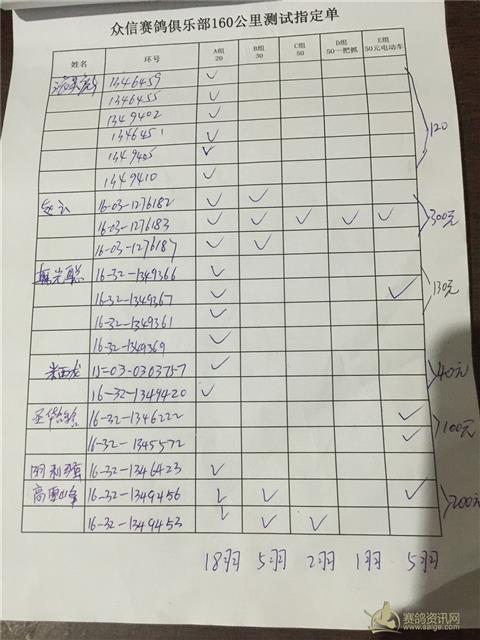 众信赛鸽俱乐部160公里测试指定单
姓名 环号 A组 20 B组 30 C组 50 D组 50一把抓 E组 50元电动车
1346459 ✓
1346455 ✓
1349402 ✓
1346451 ✓
1349405 ✓
1349410 ✓
120
16-03-1276182 ✓ ✓
16-03-1276183 ✓ ✓ ✓ ✓ ✓
16-03-1276187 ✓ ✓
300元
16-32-1349366 ✓
16-32-1349367 ✓ ✓
16-32-1349361 ✓
16-32-1349369 ✓
130元
15-03-0303757 ✓
16-32-1349420 ✓
40元
16-32-1346222 ✓
16-32-1345572 ✓
100元
16-32-1346423 ✓
16-32-1349456 ✓ ✓ ✓
16-32-1349453 ✓ ✓ ✓
200元
18羽 5羽 2羽 1羽 5羽
赛鸽资讯网
www.saige.com